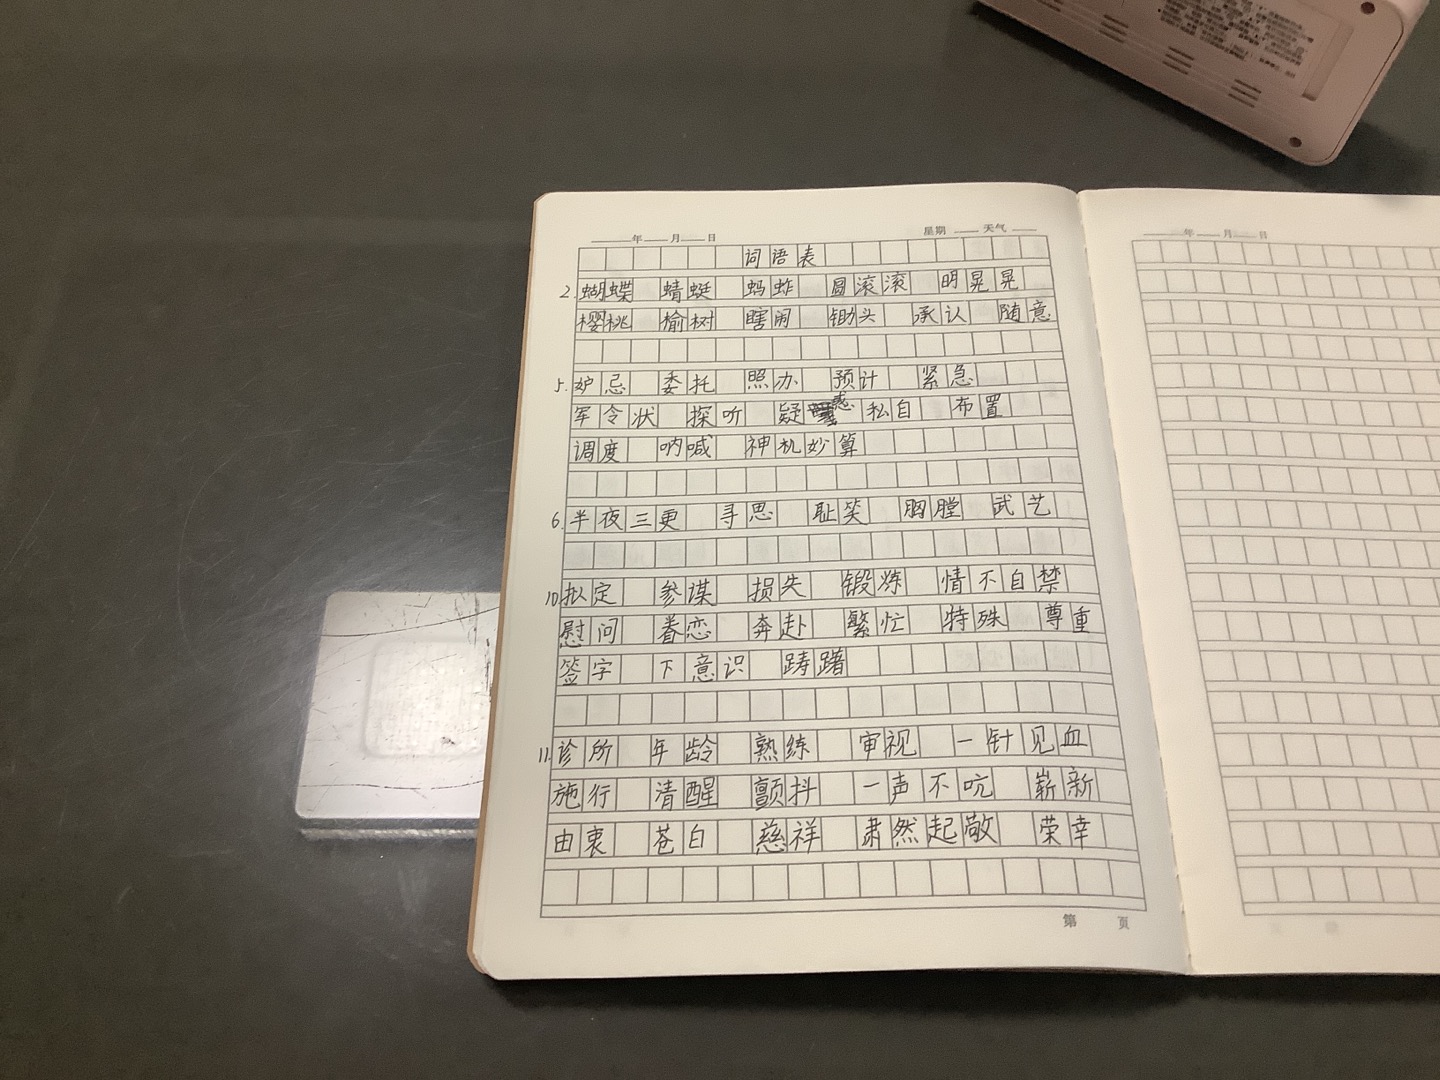 年 月 日 星期 天气
词语表
2.蝴蝶 蜻蜓 蚂蚱 圆滚滚 明晃晃
樱桃 榆树 瞎闹 锄头 承认 随意
5.妒忌 委托 照办 预计 紧急
军令状 探听 疑惑 私自 布置
调度 呐喊 神机妙算
6.半夜三更 寻思 耻笑 胸膛 武艺
10.拟定 参谋 损失 锻炼 情不自禁
慰问 眷恋 奔赴 繁忙 特殊 尊重
签字 下意识 踌躇
11.诊所 年龄 熟练 审视 一针见血
施行 清醒 颤抖 一声不吭 崭新
由衷 苍白 慈祥 肃然起敬 荣幸
第 页
年 月 日